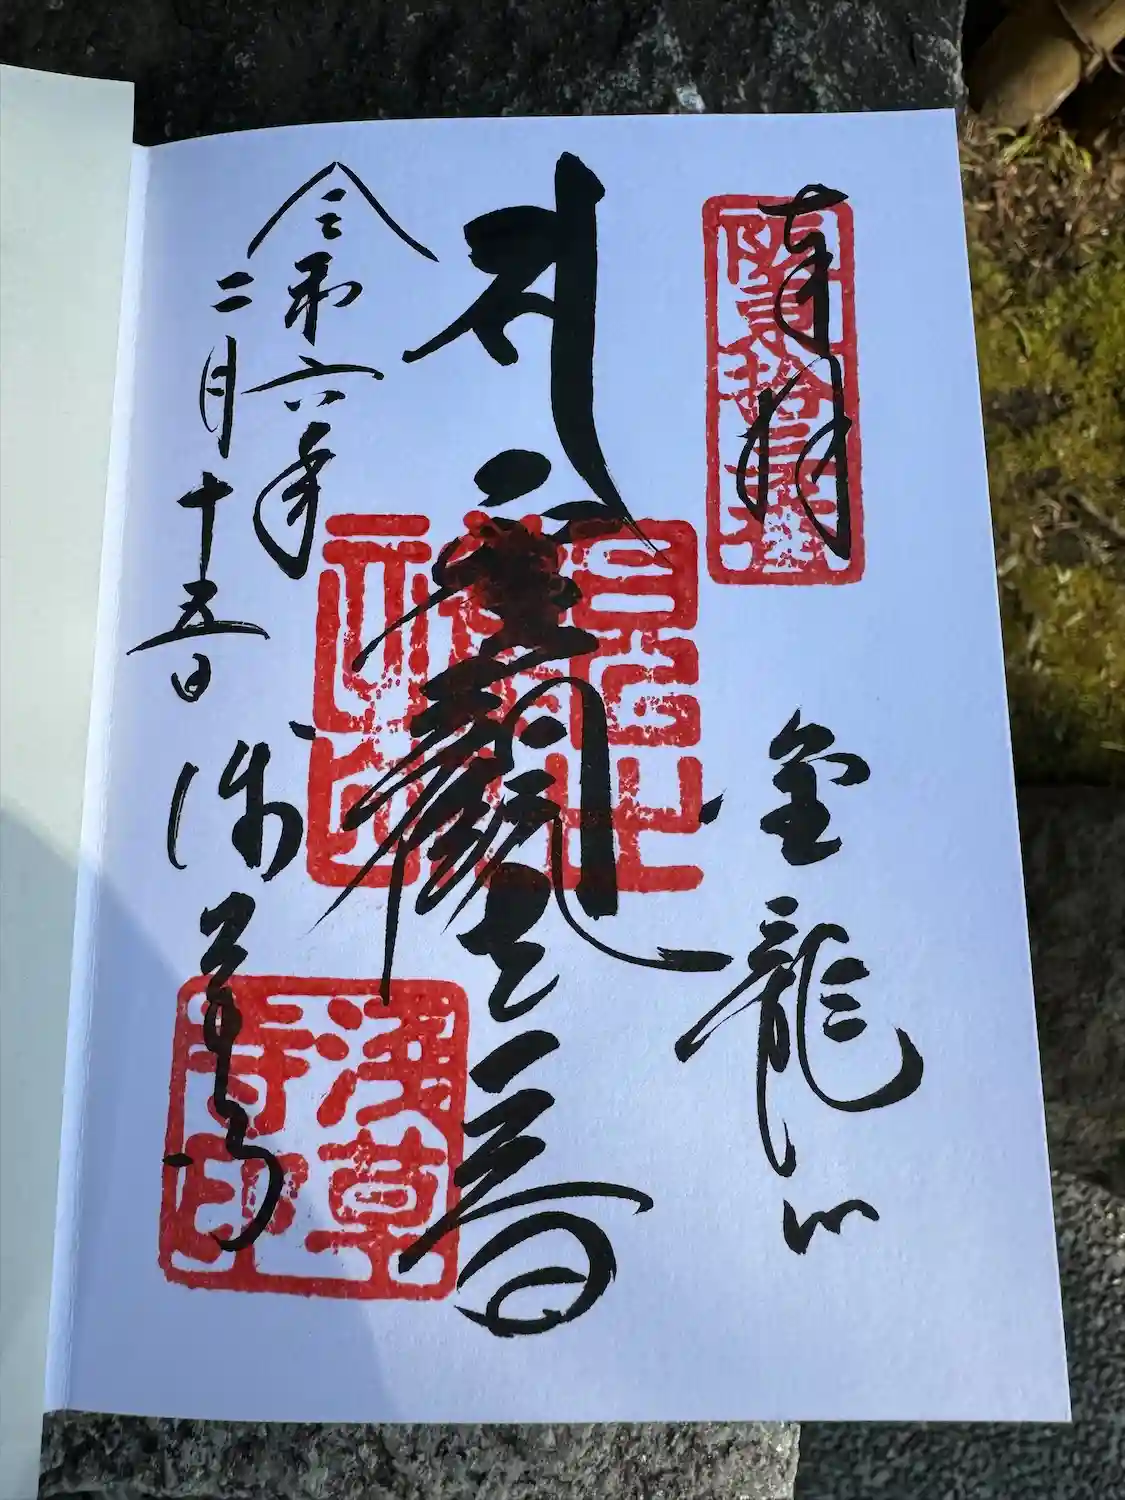 奉拝
阪東拾三番
金龍山
聖観世音
令和六年
二月十五日
浅草寺
浅草
寺印